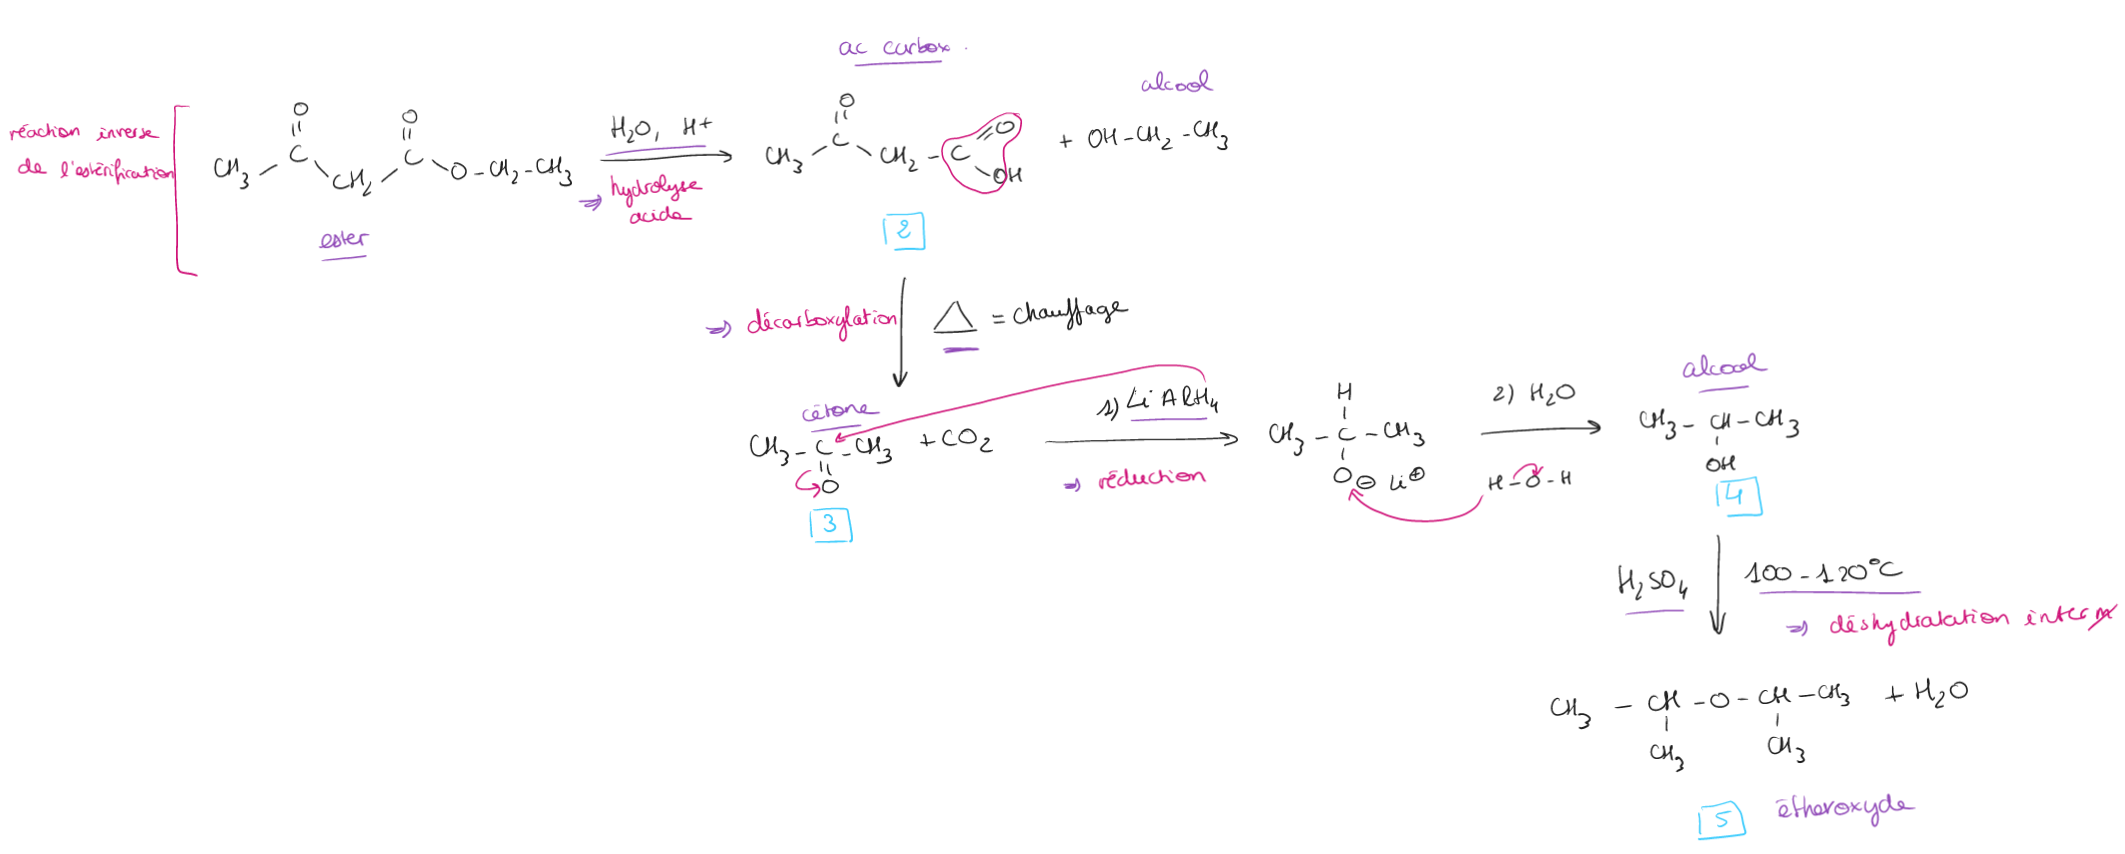 ac carbox.
alcool
réaction inverse
de l'estérification
O
||
CH3 - C - CH2 - C - O - CH2 - CH3
O
||
ester
H2O, H+
=> hydrolyse
acide
O
||
CH3 - C - CH2 - C = O
OH
+ OH - CH2 - CH3
2
=> décarboxylation
△ = chauffage
cétone
CH3 - C - CH3 + CO2
||
O
3
1) LiAlH4
=> réduction
H
|
CH3 - C - CH3
|
O ⊖ Li⊕
2) H2O
H - O - H
alcool
CH3 - CH - CH3
|
OH
4
H2SO4
100 - 120°C
=> déshydratation inter
CH3 - CH - O - CH - CH3 + H2O
| |
CH3 CH3
5
étheroxyde